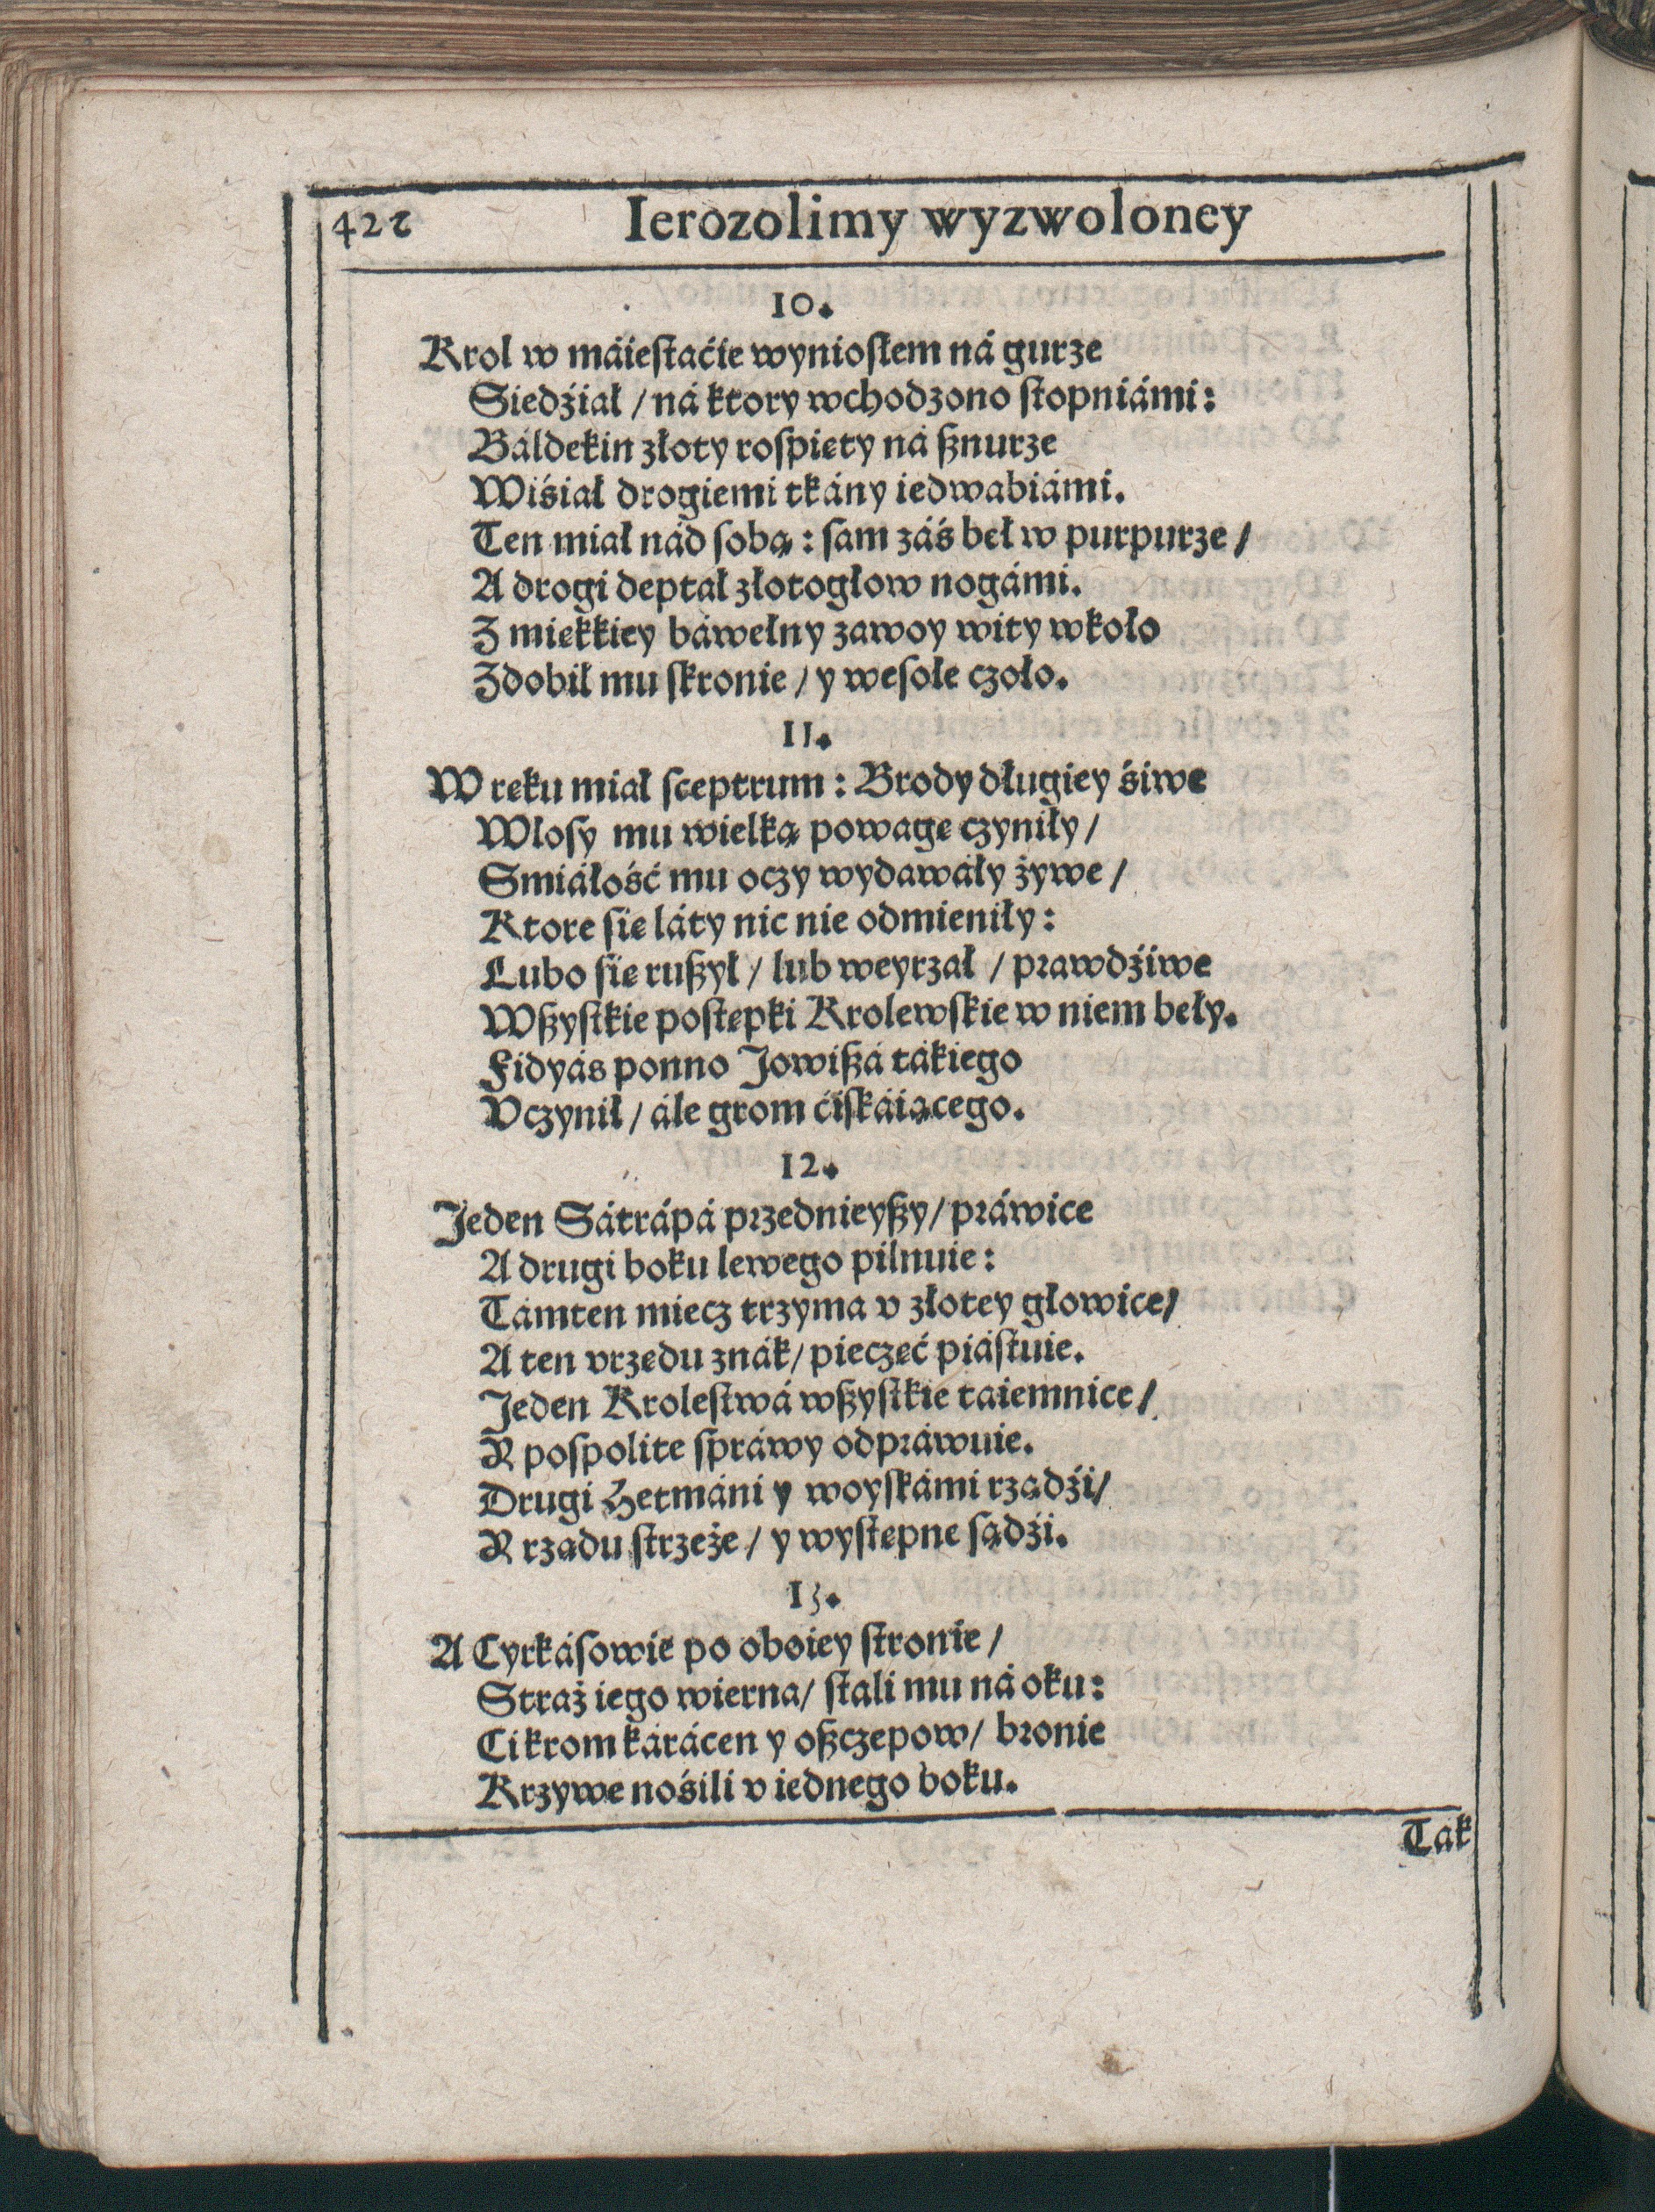 422 Ierozolimy wyzwoloney
10.
Krol w máiestaćie wyniosłem ná gurze
Siedźiał / ná ktory wchodzono stopniámi:
Báldekin złoty rospięty ná sznurze
Wiśiał drogiemi tkány iedwabiámi.
Ten miał nád sobą: sam záś beł w purpurze /
A drogi deptał złotogłow nogámi.
Z miękkiey báwełny zawoy wity wkoło
Zdobił mu skronie / y wesołe czoło.
11.
W ręku miał sceptrum: Brody długiey śiwe
Włosy mu wielką powagę czyniły /
Smiáłość mu oczy wydawáły żywe /
Ktore się láty nic nie odmieniły:
Lubo się ruszył / lub weyrzał / prawdźiwe
Wszystkie postępki Krolewskie w niem beły.
Fidyás ponno Jowiszá tákiego
Vczynił / ále grom ćiskáiącego.
12.
Jeden Sátrápá przednieyszy / práwice
A drugi boku lewego pilnuie:
Támten miecz trzyma v złotey głowice /
A ten vrzędu znák / pieczęć piástuie.
Jeden Krolestwá wszystkie taiemnice /
Y pospolite spráwy odpráwuie.
Drugi Hetmáni y woyskámi rządźi /
Y rządu strzeże / y występne sądźi.
13.
A Cyrkásowie po oboiey stronie /
Straż iego wierna / stali mu ná oku:
Ci krom kárácen y oszczepow / bronie
Krzywe nośili v iednego boku.
Tak